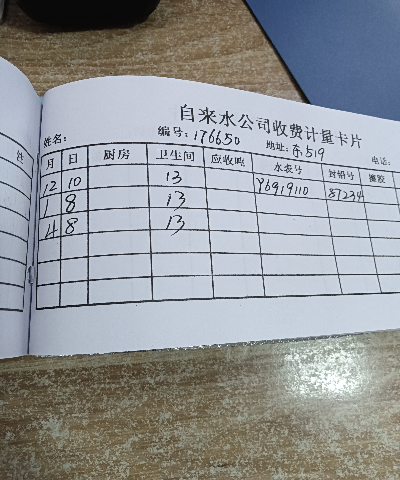 自来水公司收费计量卡片
姓名: 编号:176650 地址:东519 电话:
月 日 厨房 卫生间 应收吨 水表号 封铅号
12 10 13 Y6919110 87234
1 8 13
4 8 13